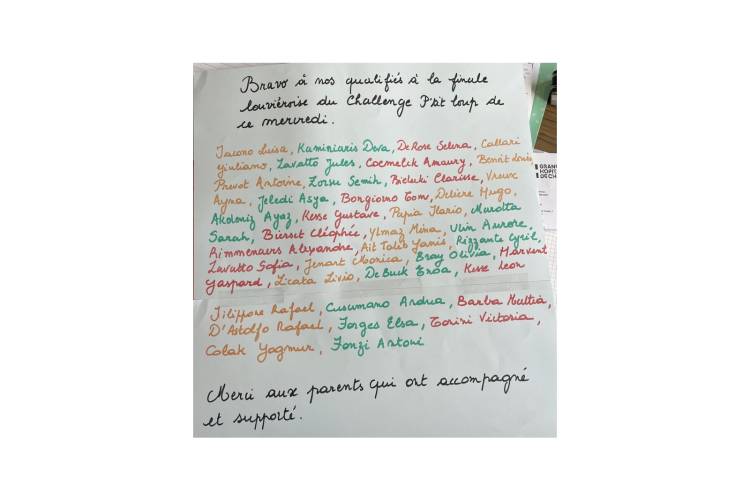 Bravo à nos qualifiés à la finale
louviéroise du Challenge P'tit loup de
ce mercredi.
Iacono Luisa, Kaminiaris Deva, De Rose Selena, Callari
Giuliano, Zavatto Jules, Cocmelik Amaury, Benoit Louis
Prevot Antoine, Zorsu Semih, Bielucki Clarisse,
Ayna, Jeledi Asya, Bongiorno Tom, Delière Hugo,
Akdeniz Ayaz, Kesse Gustave, Papia Ilario, Marotta
Sarah, Bierset Cléophée, Ylmaz Mina, Ulin Aurore,
Rimmenaers Alexandre, Ait Taleb Yanis, Rizzante Cyril,
Zavatto Sofia, Jenart Monica, Bray Olivia, Harvent
Gaspard, Licata Livio, De Buck Enoa, Kesse Leon
Filippone Rafael, Cusumano Andrea, Barba Mattia,
D'Astolfo Rafael, Forges Elsa, Torisi Victoria,
Colak Yagmur, Fonzi Antoni
Merci aux parents qui ont accompagné
et supporté.
GRAND
HOPITAL
DE CH